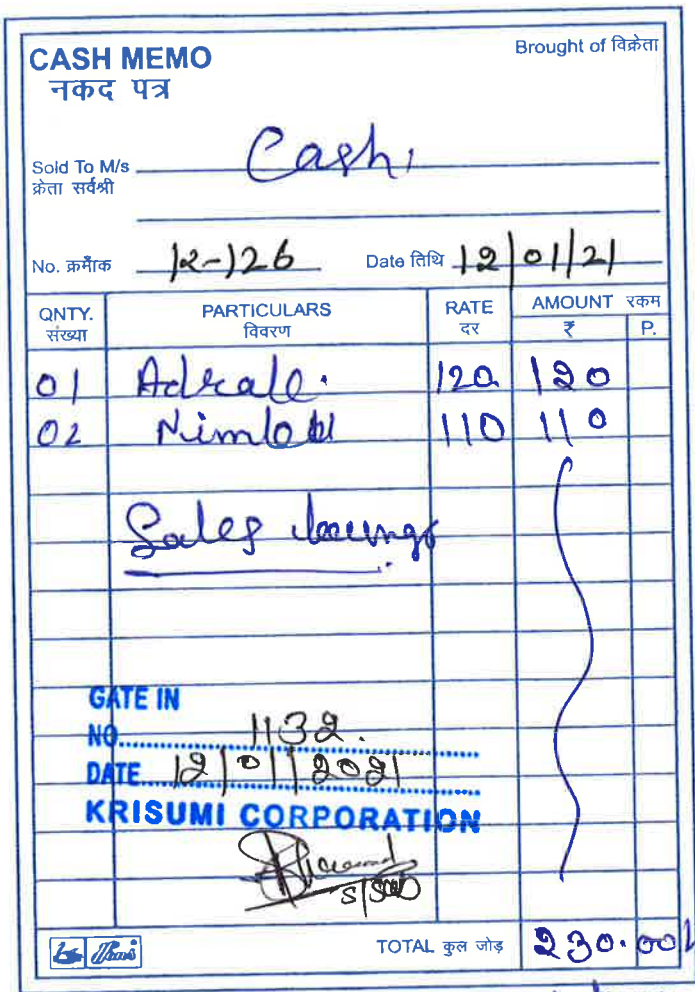 CASH MEMO
नकद पत्र
Brought of विक्रेता
Sold To M/s Cash,
क्रेता सर्वश्री
No. क्रमाँक 12-126 Date तिथि 12/01/21
QNTY. PARTICULARS RATE AMOUNT रकम
संख्या विवरण दर ₹ P.
01 120 120
02 110 110
Sales
GATE IN
NO. 1132.
DATE 12/01/2021
KRISUMI CORPORATION
TOTAL कुल जोड़ 230.00